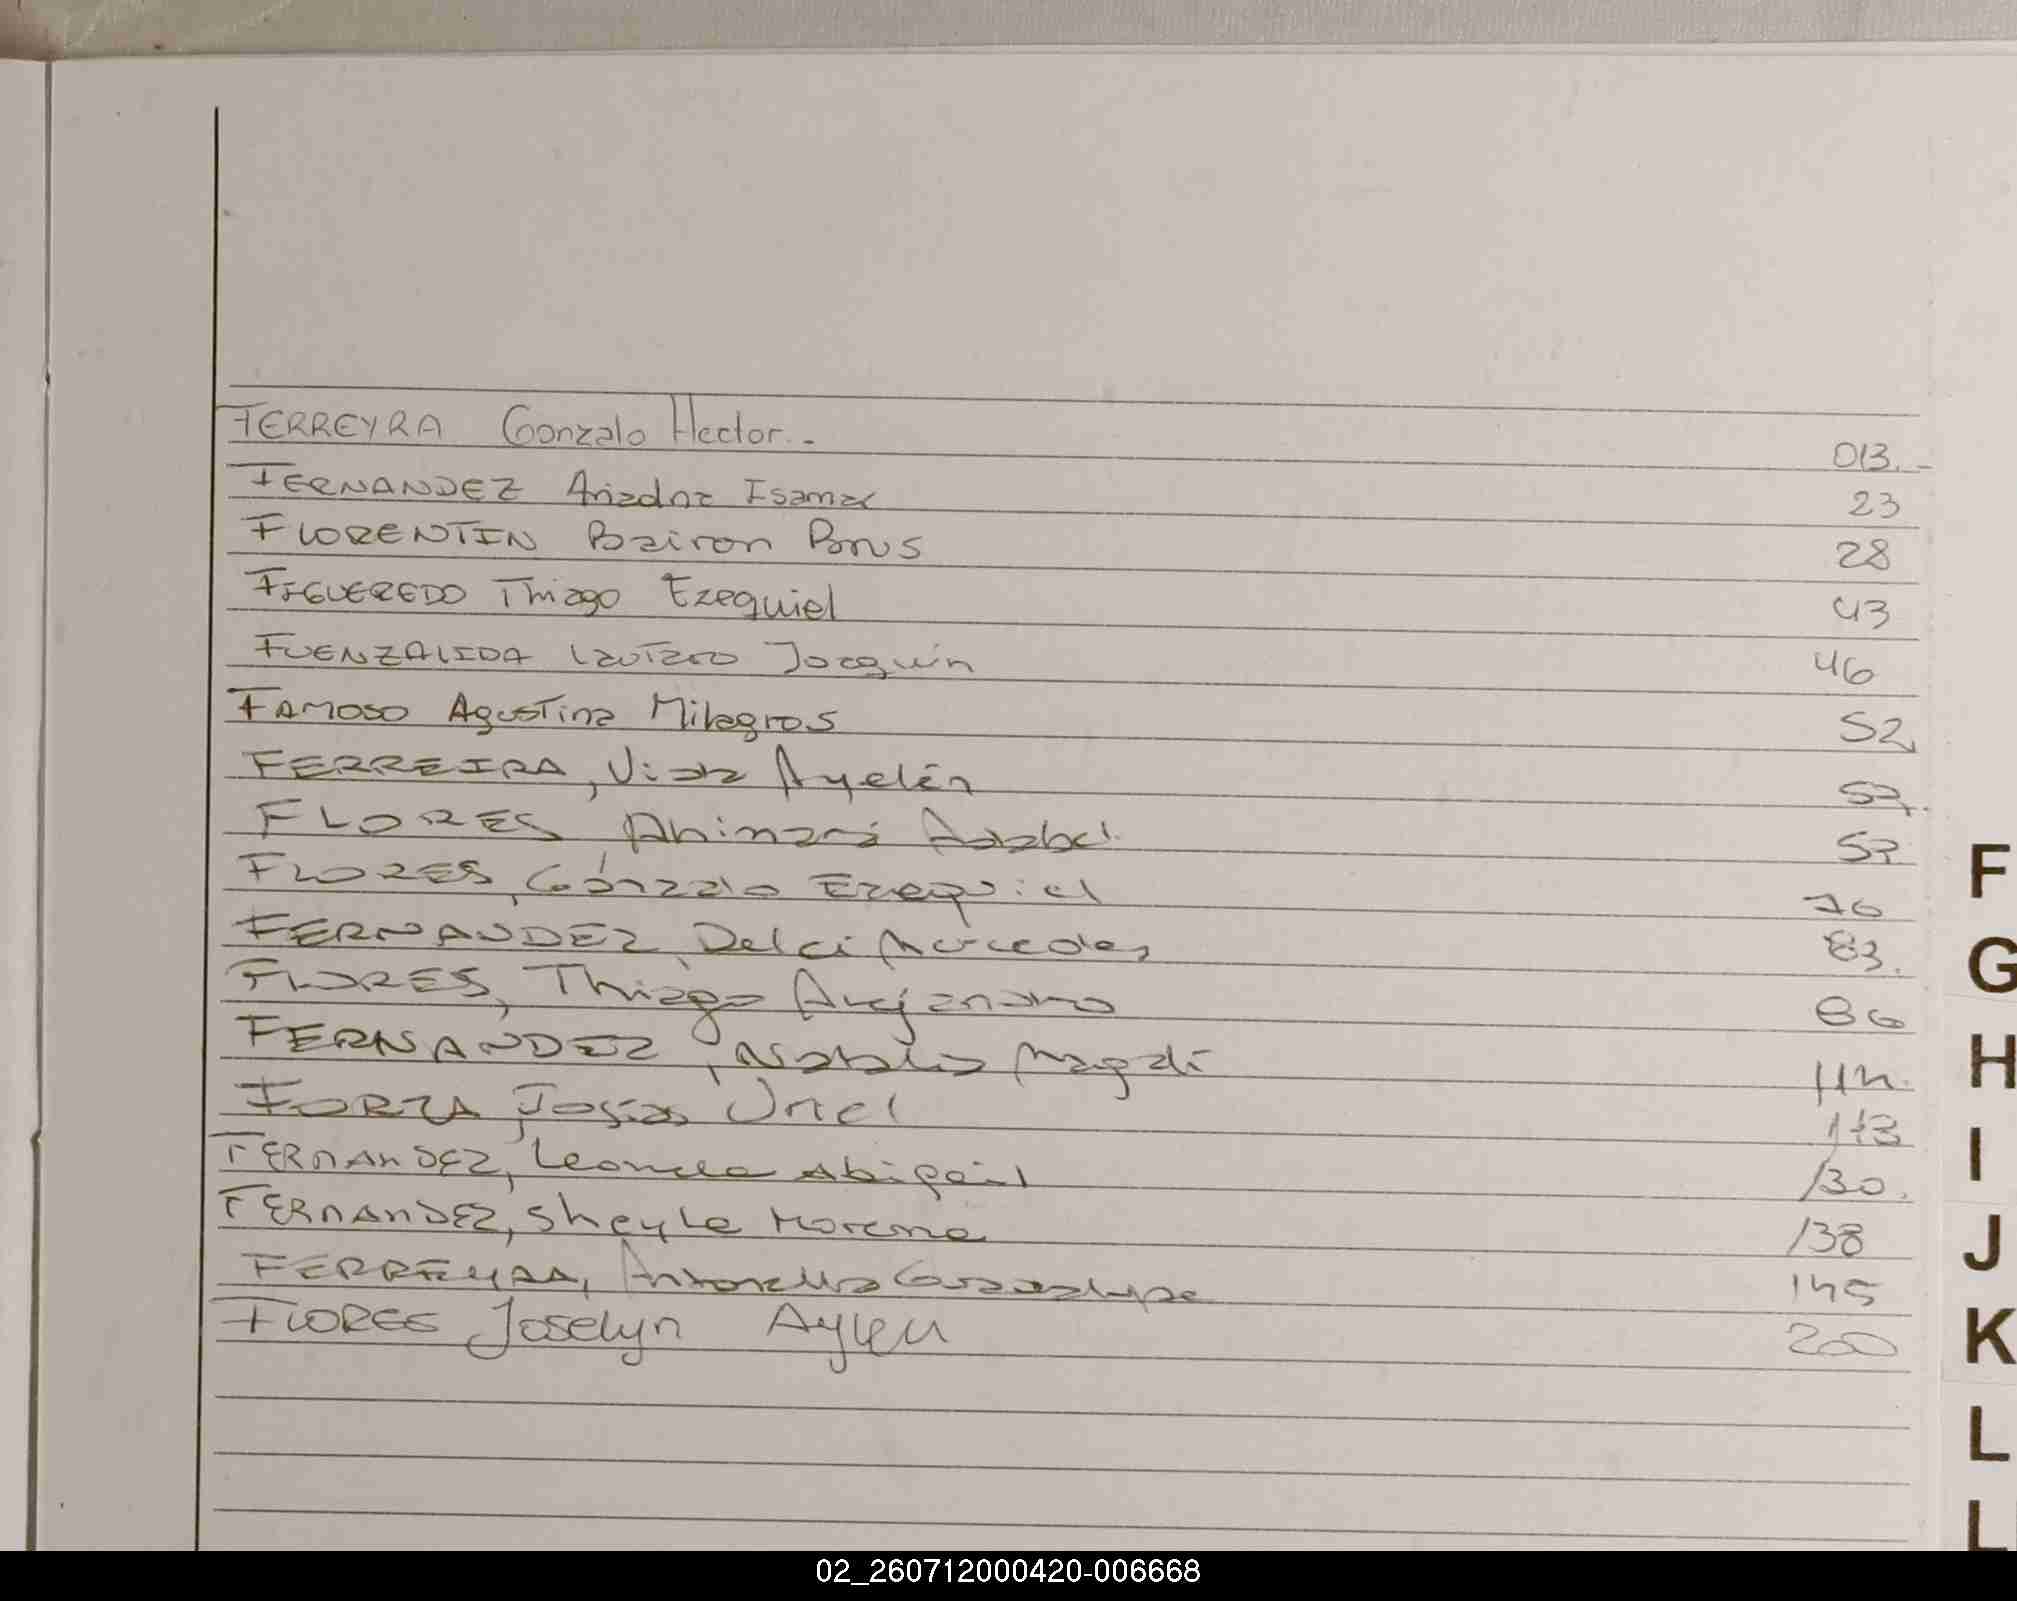 FERREYRA Gonzalo Hector.- 013.-
FERNANDEZ Ariadna Isamar 23
FLORENTIN Bairon Brus 28
FIGUEREDO Thiago Ezequiel 43
FUENZALIDA Lautaro Joaquin 46
FAMOSO Agustina Milagros 52
FERREIRA, Ayelén
FLORES 57
FLORES, Gónzalo Ezequiel 76
FERNANDEZ, Delci Mercedes 83.
FLORES, Thiago Alejandro 86
FERNANDEZ, Natalia Magali 112.
FORZA, Josías Uriel 113
FERNANDEZ, Leonela Abigail 130.
FERNANDEZ, Sheyla Morena 138
FERREYRA, Antonella Guadalupe 145
FLORES Joselyn Aylen 200
F
G
H
I
J
K
L
L
02_260712000420-006668